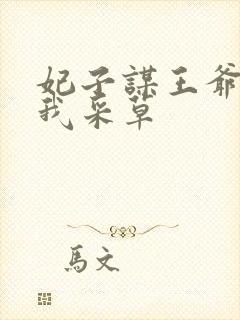 妃子謀王爺
我采草
馬文